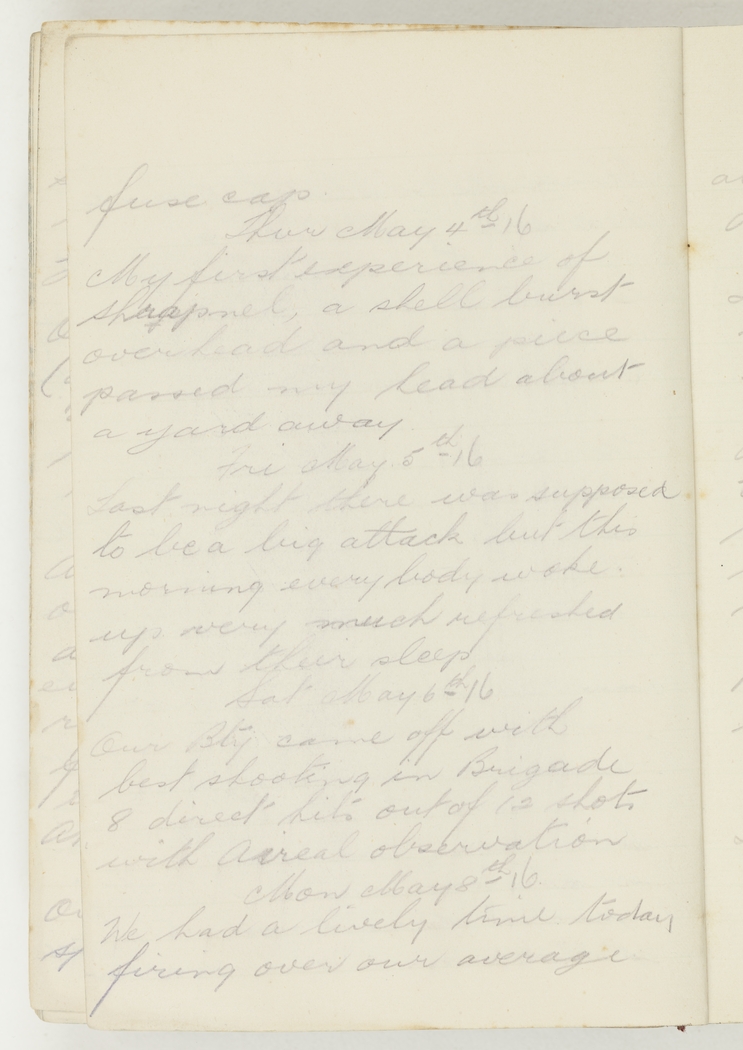 fuse cap.
Thur May 4th 16
My first experience of
shrapnel, a shell burst
overhead and a piece
passed my head about
a yard away.
Fri May 5th 16
Last night there was supposed
to be a big attack but this
morning everybody woke
up very much refreshed
from their sleep
Sat May 6th 16
Our Bty came off with
best shooting in Brigade
8 direct hits out of 12 shots
with Aireal observation
Mon May 8th 16.
We had a lively time today
firing over our average